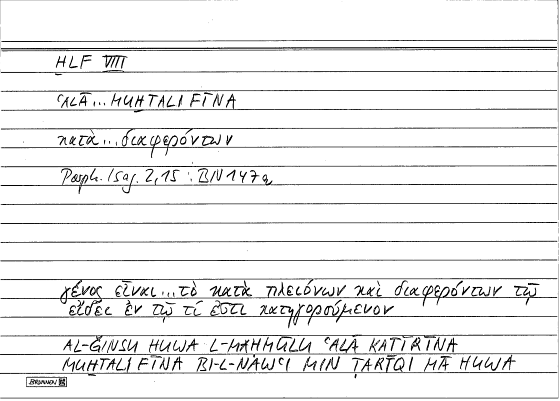 ḪLF VIII
ʿALĀ ... MUḪTALIFĪNA
κατὰ ... διαφερόντων
Porph. Isag. 2,15 : BN147a
γένος εἶναι ... τὸ κατὰ πλειόνων καὶ διαφερόντων τῷ
εἴδει ἐν τῷ τί ἐστι κατηγορούμενον
AL-ǦINSU HUWA L-MAḤMŪLU ʿALĀ KAṮĪRĪNA
MUḪTALIFĪNA BI-L-NAWʿI MIN ṬARĪQI MĀ HUWA
BRUNNEN